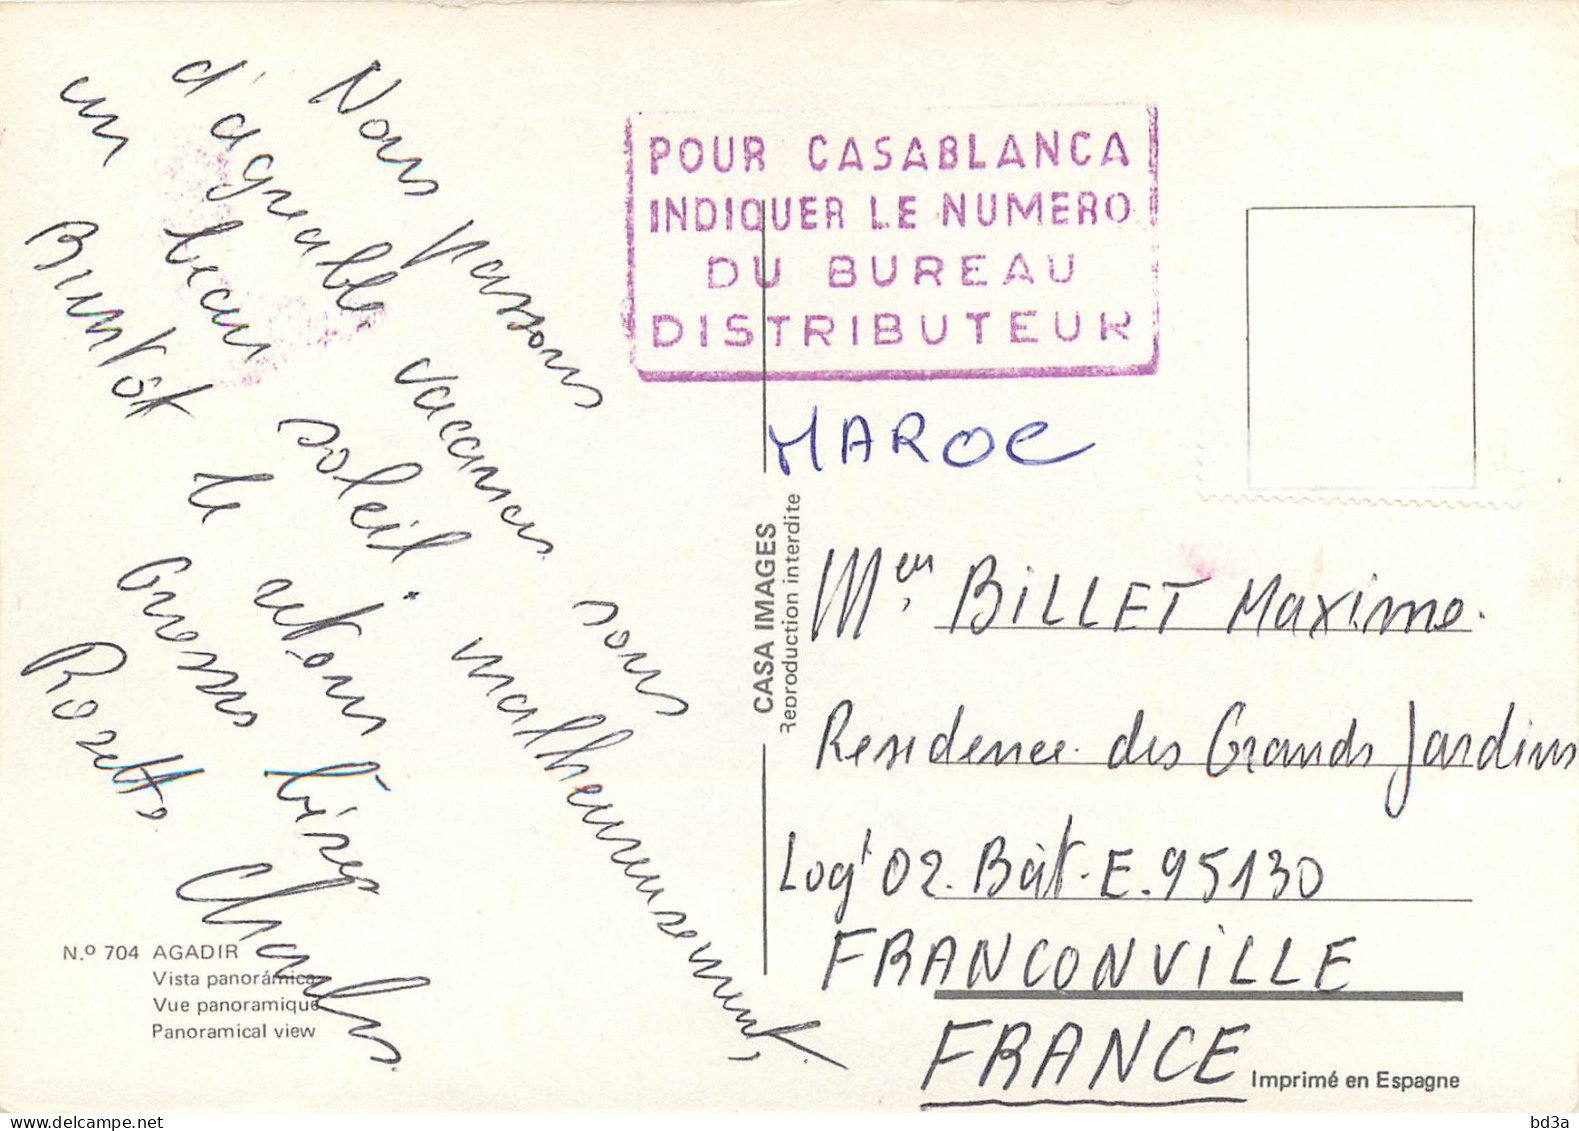 Nous passons
d'agréable vacances sous
un beau soleil. malheureusement,
Bientôt le retour
Grosses bises
Rosette Charles
POUR CASABLANCA
INDIQUER LE NUMERO
DU BUREAU
DISTRIBUTEUR
MAROC
CASA IMAGES
Reproduction interdite
Meur BiLLET Maxime.
Residence des Grands Jardins
Logt 02. Bât. E. 95130
FRANCONViLLE
FRANCE
N.º 704 AGADIR
Vista panorámica
Vue panoramique
Panoramical view
Imprimé en Espagne
delcampe.net
bd3a